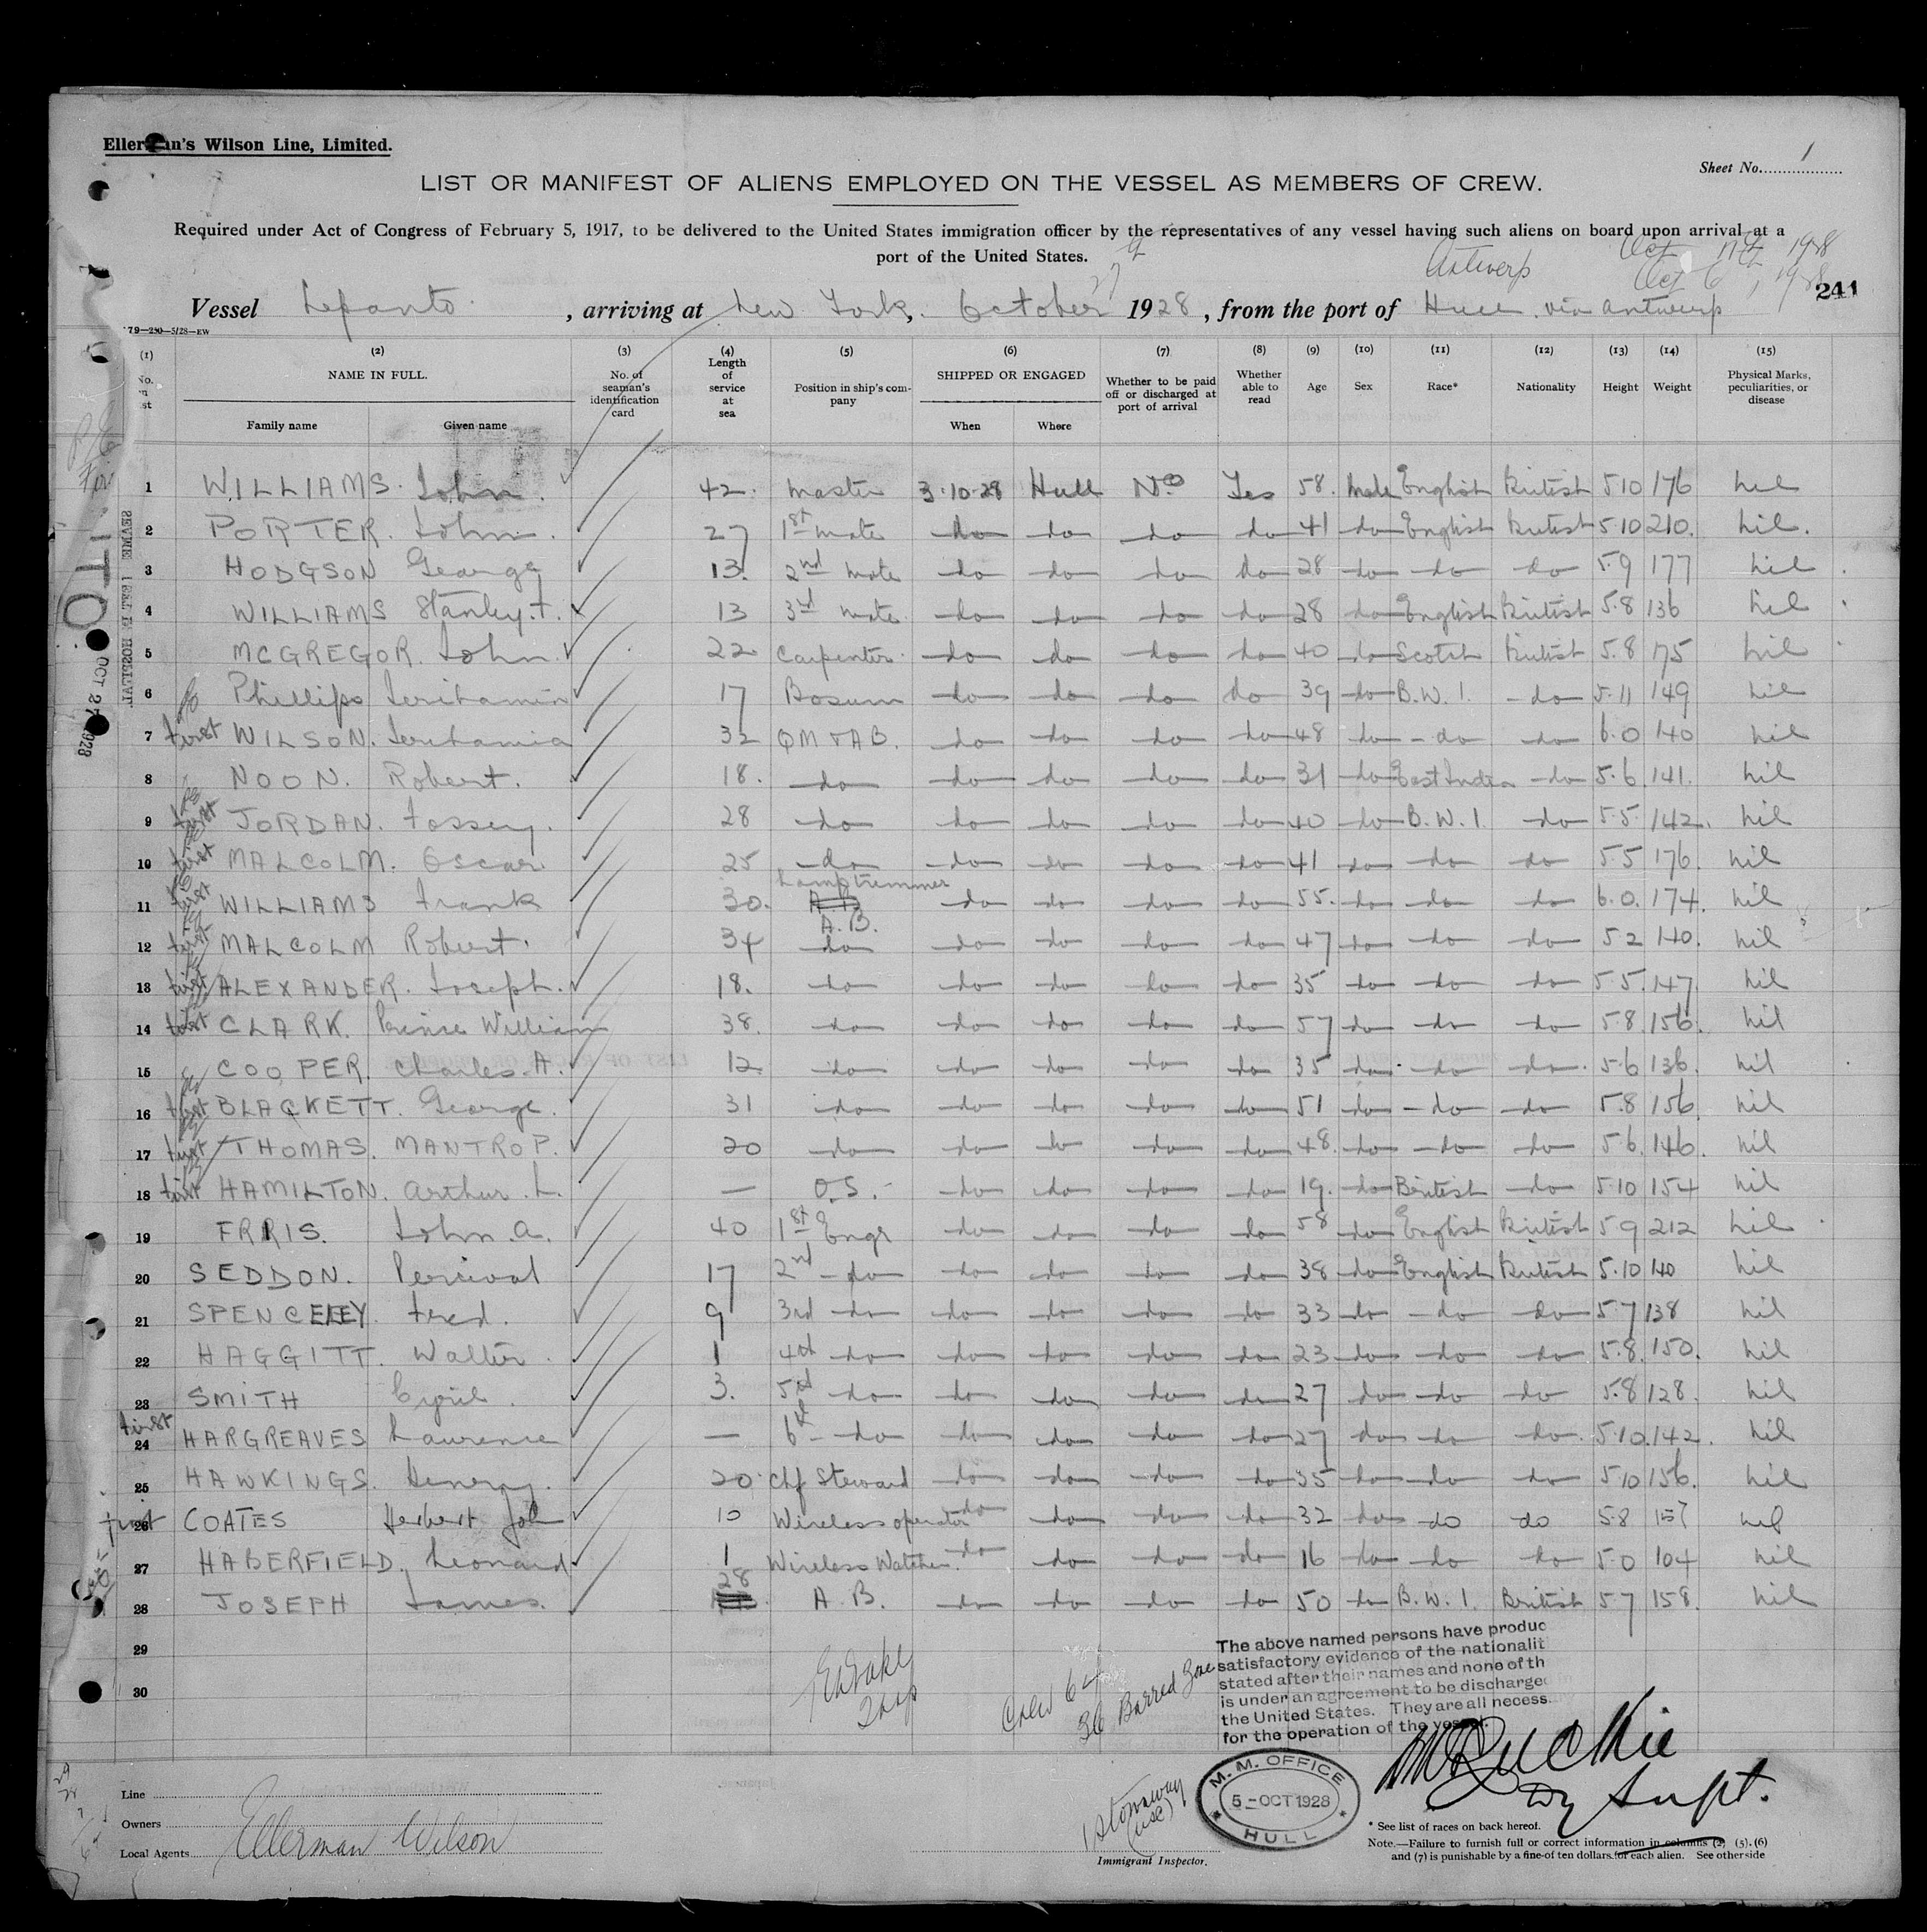 Ellerman's Wilson Line, Limited.
Sheet No. 1
LIST OR MANIFEST OF ALIENS EMPLOYED ON THE VESSEL AS MEMBERS OF CREW.
Required under Act of Congress of February 5, 1917, to be delivered to the United States immigration officer by the representatives of any vessel having such aliens on board upon arrival at a
port of the United States.
Antwerp Oct 17th 1928
Oct 6, 1928
241
Vessel Lepanto, arriving at New York, October 27th 1928, from the port of Hull via Antwerp
79—250—5/28—EW
(1) (2) (3) (4) (5) (6) (7) (8) (9) (10) (11) (12) (13) (14) (15)
No. NAME IN FULL. Family name Given name No. of seaman's identification card Length of service at sea Position in ship's company SHIPPED OR ENGAGED When Where Whether to be paid off or discharged at port of arrival Whether able to read Age Sex Race* Nationality Height Weight Physical Marks, peculiarities, or disease
1 WILLIAMS. John. 42. Master 3.10.28 Hull No Yes 58. Male English British 5.10 176 nil
2 PORTER. John. 27 1st mate do do do do 41 do English British 5.10 210. nil.
3 HODGSON George 13. 2nd Mate do do do do 28 do do do 5.9 177 nil
4 WILLIAMS Stanley. 13 3rd mate do do do do 28 do English British 5.8 136 nil
5 MCGREGOR. John. 22 Carpenter do do do do 40 do Scotch British 5.8 175 nil
6 Phillips 17 Bosun do do do do 39 do B.W.I. do 5.11 149 nil
7 first WILSON. 32 QM & AB. do do do do 48 do do do 6.0 140 nil
8 NOON. Robert. 18. do do do do do 31 do East Indian do 5.6. 141. nil
9 first JORDAN. 28 do do do do do 40 do B.W.I. do 5.5. 142. nil
10 first MALCOLM. Oscar 25 do do do do do 41 do do do 5.5 176. nil
11 first WILLIAMS Frank 30. Lamptrimmer do do do do 55. do do do 6.0. 174. nil
A.B.
12 first MALCOLM Robert. 34 do do do do do 47 do do do 5.2 140. nil
13 first ALEXANDER. Joseph. 18. do do do do do 35 do do do 5.5. 147. nil
14 first CLARK. Prince William 38. do do do do do 57 do do do 5.8 156. nil
15 COOPER. Charles. A. 12. do do do do do 35 do do do. 5.6 136. nil
16 first BLACKETT. George. 31 do do do do do 51 do do do 5.8 156 nil
17 first THOMAS. MANTROP. 20 do do do do do 48. do do do 5.6. 146. nil
18 first HAMILTON. Arthur. L. — O.S. do do do do 19. do British do 5.10 154 nil
19 FRRIS. John. A. 40 1st Engr do do do do 58 do English British 5.9 212 nil
20 SEDDON. Percival 17 2nd do do do do do 38 do English British 5.10 140 nil
21 SPENCELEY. Fred. 9 3rd do do do do do 33 do do do 5.7 138 nil
22 HAGGITT. Walter. 1 4th do do do do do 23 do do do 5.8. 150. nil
23 SMITH Cyril. 3. 5th do do do do do 27 do do do 5.8 128. nil
24 first HARGREAVES Laurence — 6th do do do do do 27 do do do. 5.10. 142. nil
25 HAWKINGS. Henry. 20. Chf Steward do do do do 35 do do do 5.10 156. nil
26 first COATES Herbert John 10 Wireless operator do do do do 32 do do do 5.8 157 nil
27 HABERFIELD. Leonard 1 Wireless Watcher. do do do do 16 do do do 5.0 104 nil
28 JOSEPH James. 28 A.B. do do do do 50 do B.W.I. British 5.7 158. nil
29
30
Crew 64
36 Barred Zone
The above named persons have produc
satisfactory evidence of the nationalit
stated after their names and none of th
is under an agreement to be discharge
the United States. They are all necess
for the operation of the vessel.
M. M. OFFICE
5-OCT 1928
HULL
Dy Supt.
1 Stowaway
(USC)
Line
Owners
Local Agents Ellerman Wilson
Immigrant Inspector.
* See list of races on back hereof.
Note.—Failure to furnish full or correct information in columns (2) (5), (6)
and (7) is punishable by a fine of ten dollars for each alien. See other side
OCT 27 1928